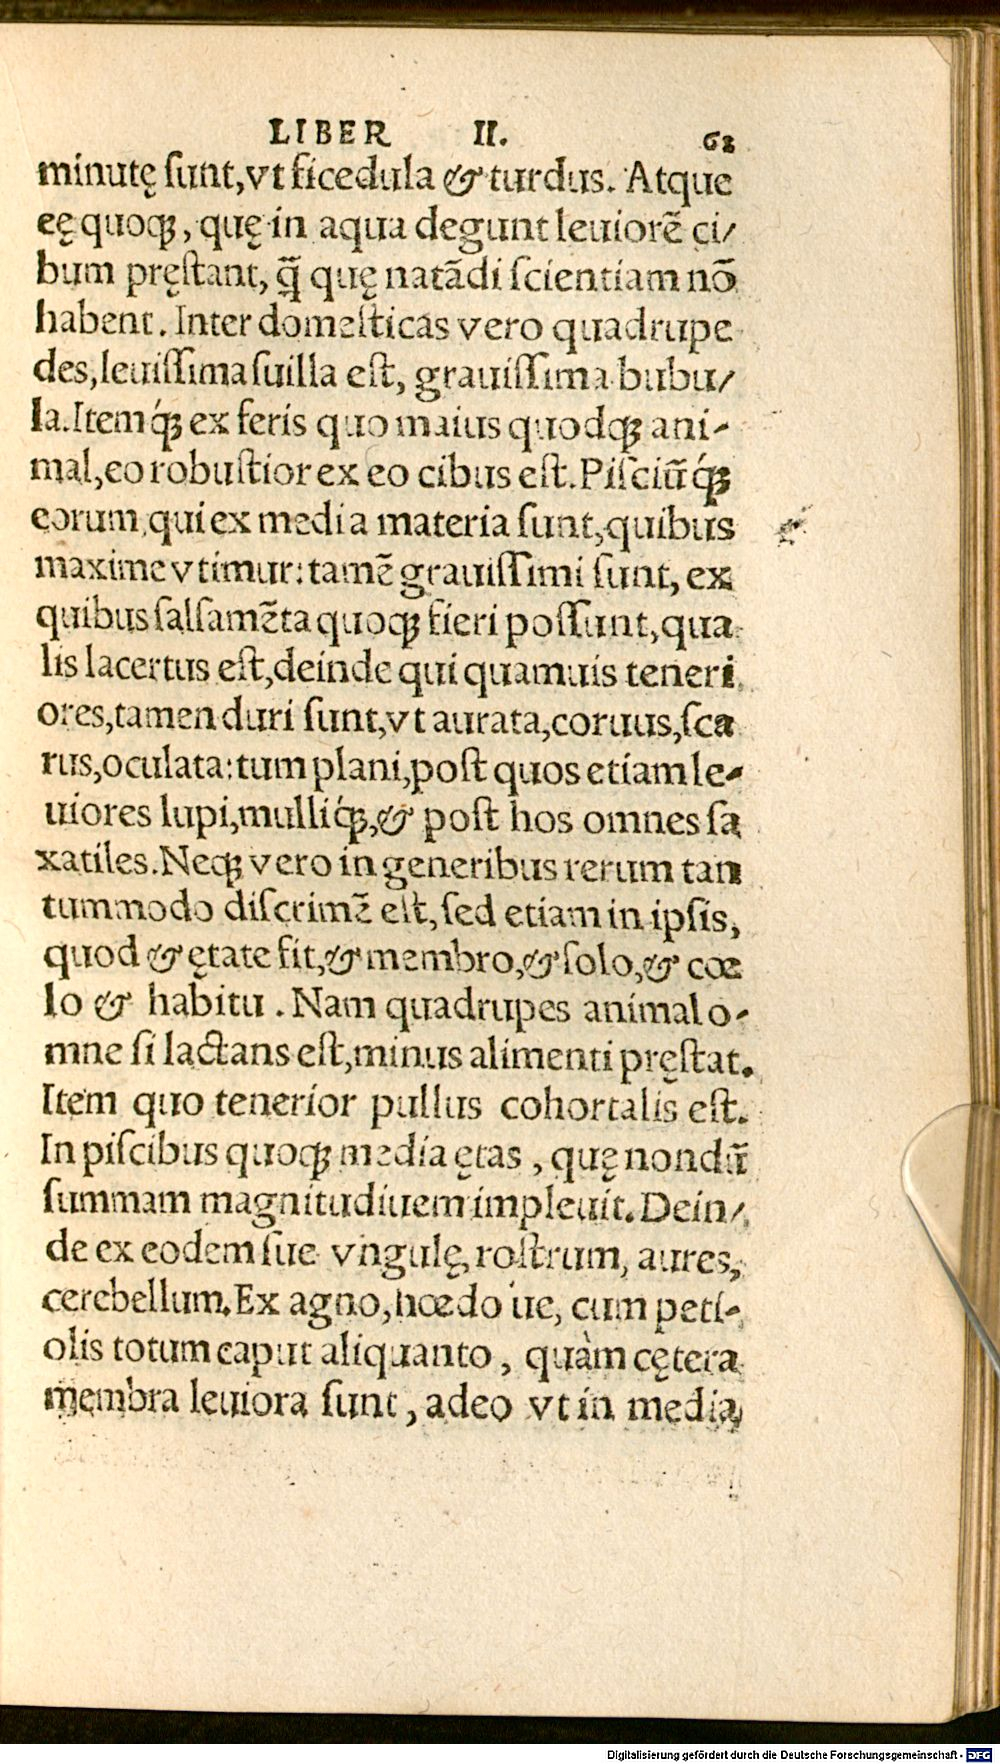 LIBER II. 62
minutę ſunt, vt ficedula & turdus. Atque
eę quoq;, quę in aqua degunt leuiorẽ ci/
bum pręſtant, q̃ quę natãdi ſcientiam nõ
habent. Inter domeſticas vero quadrupe
des, leuiſſima ſuilla eſt, grauiſſima bubu/
la. Itemq́; ex feris quo maius quodq; ani-
mal, eo robuſtior ex eo cibus eſt. Piſciũq́;
eorum, qui ex media materia ſunt, quibus
maxime vtimur: tamẽ grauiſſimi ſunt, ex
quibus ſalſamẽta quoq; fieri poſſunt, qua
lis lacertus eſt, deinde qui quamuis teneri
ores, tamen duri ſunt, vt aurata, coruus, ſca
rus, oculata: tum plani, poſt quos etiam le-
uiores lupi, mulliq́;, & poſt hos omnes ſa
xatiles. Neq; vero in generibus rerum tan
tummodo diſcrimẽ eſt, ſed etiam in ipſis,
quod & ętate fit, & membro, & ſolo, & cœ
lo & habitu. Nam quadrupes animal o-
mne ſi lactans eſt, minus alimenti pręſtat.
Item quo tenerior pullus cohortalis eſt.
In piſcibus quoq; media ętas, quę nondũ
ſummam magnitudiuem impleuit. Dein/
de ex eodem ſue vngulę, roſtrum, aures,
cerebellum. Ex agno, hœdo ue, cum peti-
olis totum caput aliquanto, quàm cętera
membra leuiora ſunt, adeo vt in media
Digitalisierung gefördert durch die Deutsche Forschungsgemeinschaft - DFG